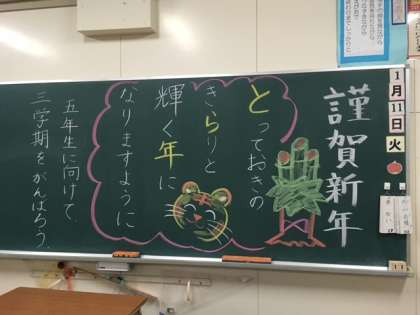 謹賀新年
とっておきの
きらりと
輝く年に
なりますように
五年生に向けて、
三学期をがんばろう。
1
月
11
日
火